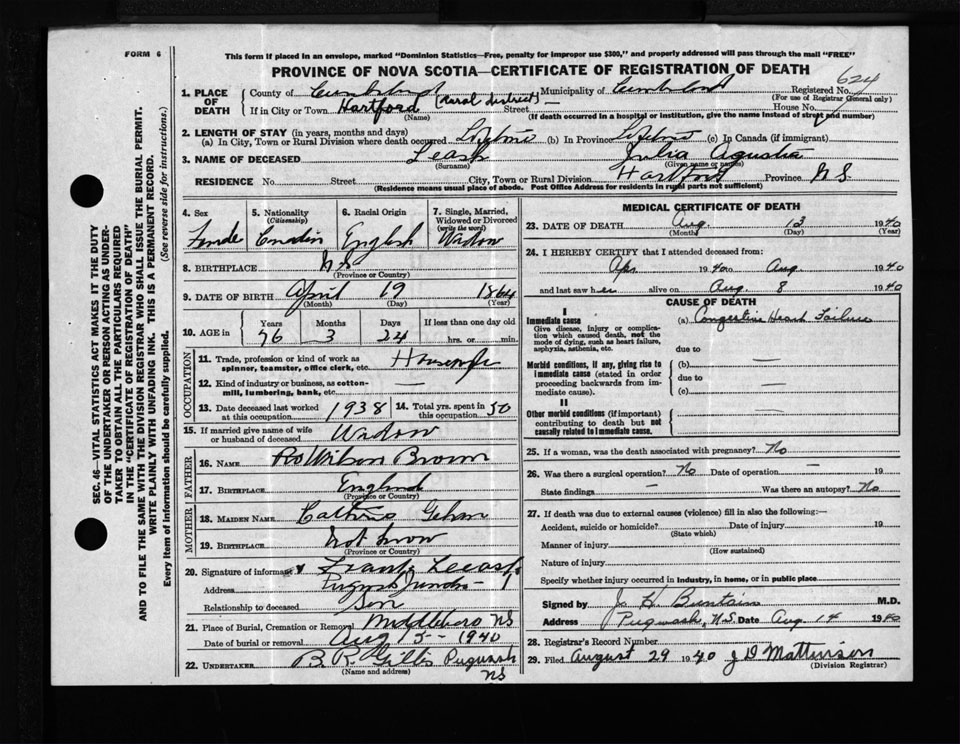 FORM 6
This form if placed in an envelope, marked "Dominion Statistics—Free, penalty for improper use $300," and properly addressed will pass through the mail "FREE"
PROVINCE OF NOVA SCOTIA—CERTIFICATE OF REGISTRATION OF DEATH
624
1. PLACE OF DEATH County of Cumberland Municipality of Cumberland Registered No.
(For use of Registrar General only)
If in City or Town Hartford (Rural district) Street House No.
(Name) (If death occurred in a hospital or institution, give the name instead of street and number)
2. LENGTH OF STAY (in years, months and days)
(a) In City, Town or Rural Division where death occurred Lifetime (b) In Province Lifetime (c) In Canada (if immigrant)
3. NAME OF DECEASED Julia Agusta
(Surname) (Given name or names)
RESIDENCE No. Street City, Town or Rural Division Hartford Province N S.
(Residence means usual place of abode. Post Office Address for residents in rural parts not sufficient)
4. Sex 5. Nationality (Citizenship) 6. Racial Origin 7. Single, Married, Widowed or Divorced (write the word)
Female English Widow
8. BIRTHPLACE N S
(Province or Country)
9. DATE OF BIRTH April 19 1864
(Month) (Day) (Year)
10. AGE in Years Months Days If less than one day old
76 3 24 hrs. or min.
OCCUPATION
11. Trade, profession or kind of work as spinner, teamster, office clerk, etc. Housewife
12. Kind of industry or business, as cotton-mill, lumbering, bank, etc. —
13. Date deceased last worked at this occupation 1938 14. Total yrs. spent in this occupation 50
15. If married give name of wife or husband of deceased Widow
FATHER
16. NAME Brown
17. BIRTHPLACE England
(Province or Country)
MOTHER
18. MAIDEN NAME
19. BIRTHPLACE Not know
(Province or Country)
20. Signature of informant Frank
Address Pugwash Junction
Relationship to deceased Son
21. Place of Burial, Cremation or Removal Middleboro NS
Date of burial or removal Aug 15 - 1940
22. UNDERTAKER B. R. Pugwash
(Name and address) NS
MEDICAL CERTIFICATE OF DEATH
23. DATE OF DEATH Aug 13 1940
(Month) (Day) (Year)
24. I HEREBY CERTIFY that I attended deceased from:
Apr 1940 to Aug. 1940
and last saw her alive on Aug. 8 1940
CAUSE OF DEATH
I
Immediate cause (a) Congestive Heart Failure
Give disease, injury or complication which caused death, not the mode of dying, such as heart failure, asphyxia, asthenia, etc.
due to
Morbid conditions, if any, giving rise to immediate cause (stated in order proceeding backwards from immediate cause). (b)
due to
(c)
II
Other morbid conditions (if important) contributing to death but not causally related to immediate cause.
25. If a woman, was the death associated with pregnancy? No
26. Was there a surgical operation? No Date of operation — 19
State findings — Was there an autopsy? No
27. If death was due to external causes (violence) fill in also the following:—
Accident, suicide or homicide? Date of injury 19
(State which)
Manner of injury
(How sustained)
Nature of injury
Specify whether injury occurred in industry, in home, or in public place
Signed by M.D.
Address Pugwash, N.S. Date Aug. 14 1940
28. Registrar's Record Number
29. Filed August 29 1940 J D Mattinson
(Division Registrar)
SEC. 46—VITAL STATISTICS ACT MAKES IT THE DUTY
OF THE UNDERTAKER OR PERSON ACTING AS UNDER-
TAKER TO OBTAIN ALL THE PARTICULARS REQUIRED
IN THE "CERTIFICATE OF REGISTRATION OF DEATH"
AND TO FILE THE SAME WITH THE DIVISION REGISTRAR WHO SHALL ISSUE THE BURIAL PERMIT.
WRITE PLAINLY WITH UNFADING INK. THIS IS A PERMANENT RECORD.
Every item of information should be carefully supplied. (See reverse side for instructions.)